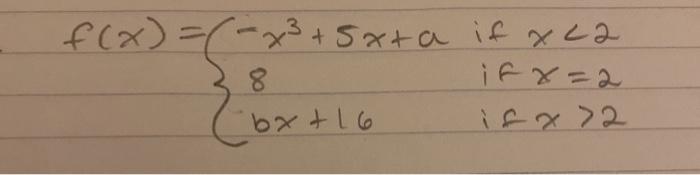 f(x) = { -x³ + 5x + a if x < 2
8 if x = 2
bx + 16 if x > 2